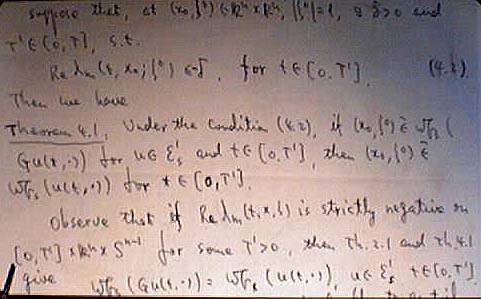 suppose that, at (x₀, ξ⁰) ∈ ℝⁿ × ℝⁿ, |ξ⁰| = 1, ∃ δ > 0 and
T' ∈ (0, T], s.t.
Re λm(t, x₀; ξ⁰) ≤ -δ, for t ∈ [0, T']. (4.2)
Then we have
Theorem 4.1. Under the condition (4.2), if (x₀, ξ⁰) ∉ WF (
Gu(t, ·)) for u ∈ Ɛ's and t ∈ [0, T'], then (x₀, ξ⁰) ∉
WF (u(t, ·)) for t ∈ [0, T'].
Observe that if Re λm(t, x, ξ) is strictly negative on
[0, T'] × ℝⁿ × Sⁿ⁻¹ for some T' > 0, then Th. 2.1 and Th. 4.1
give WF (Gu(t, ·)) = WF (u(t, ·)), u ∈ Ɛ's t ∈ [0, T'].